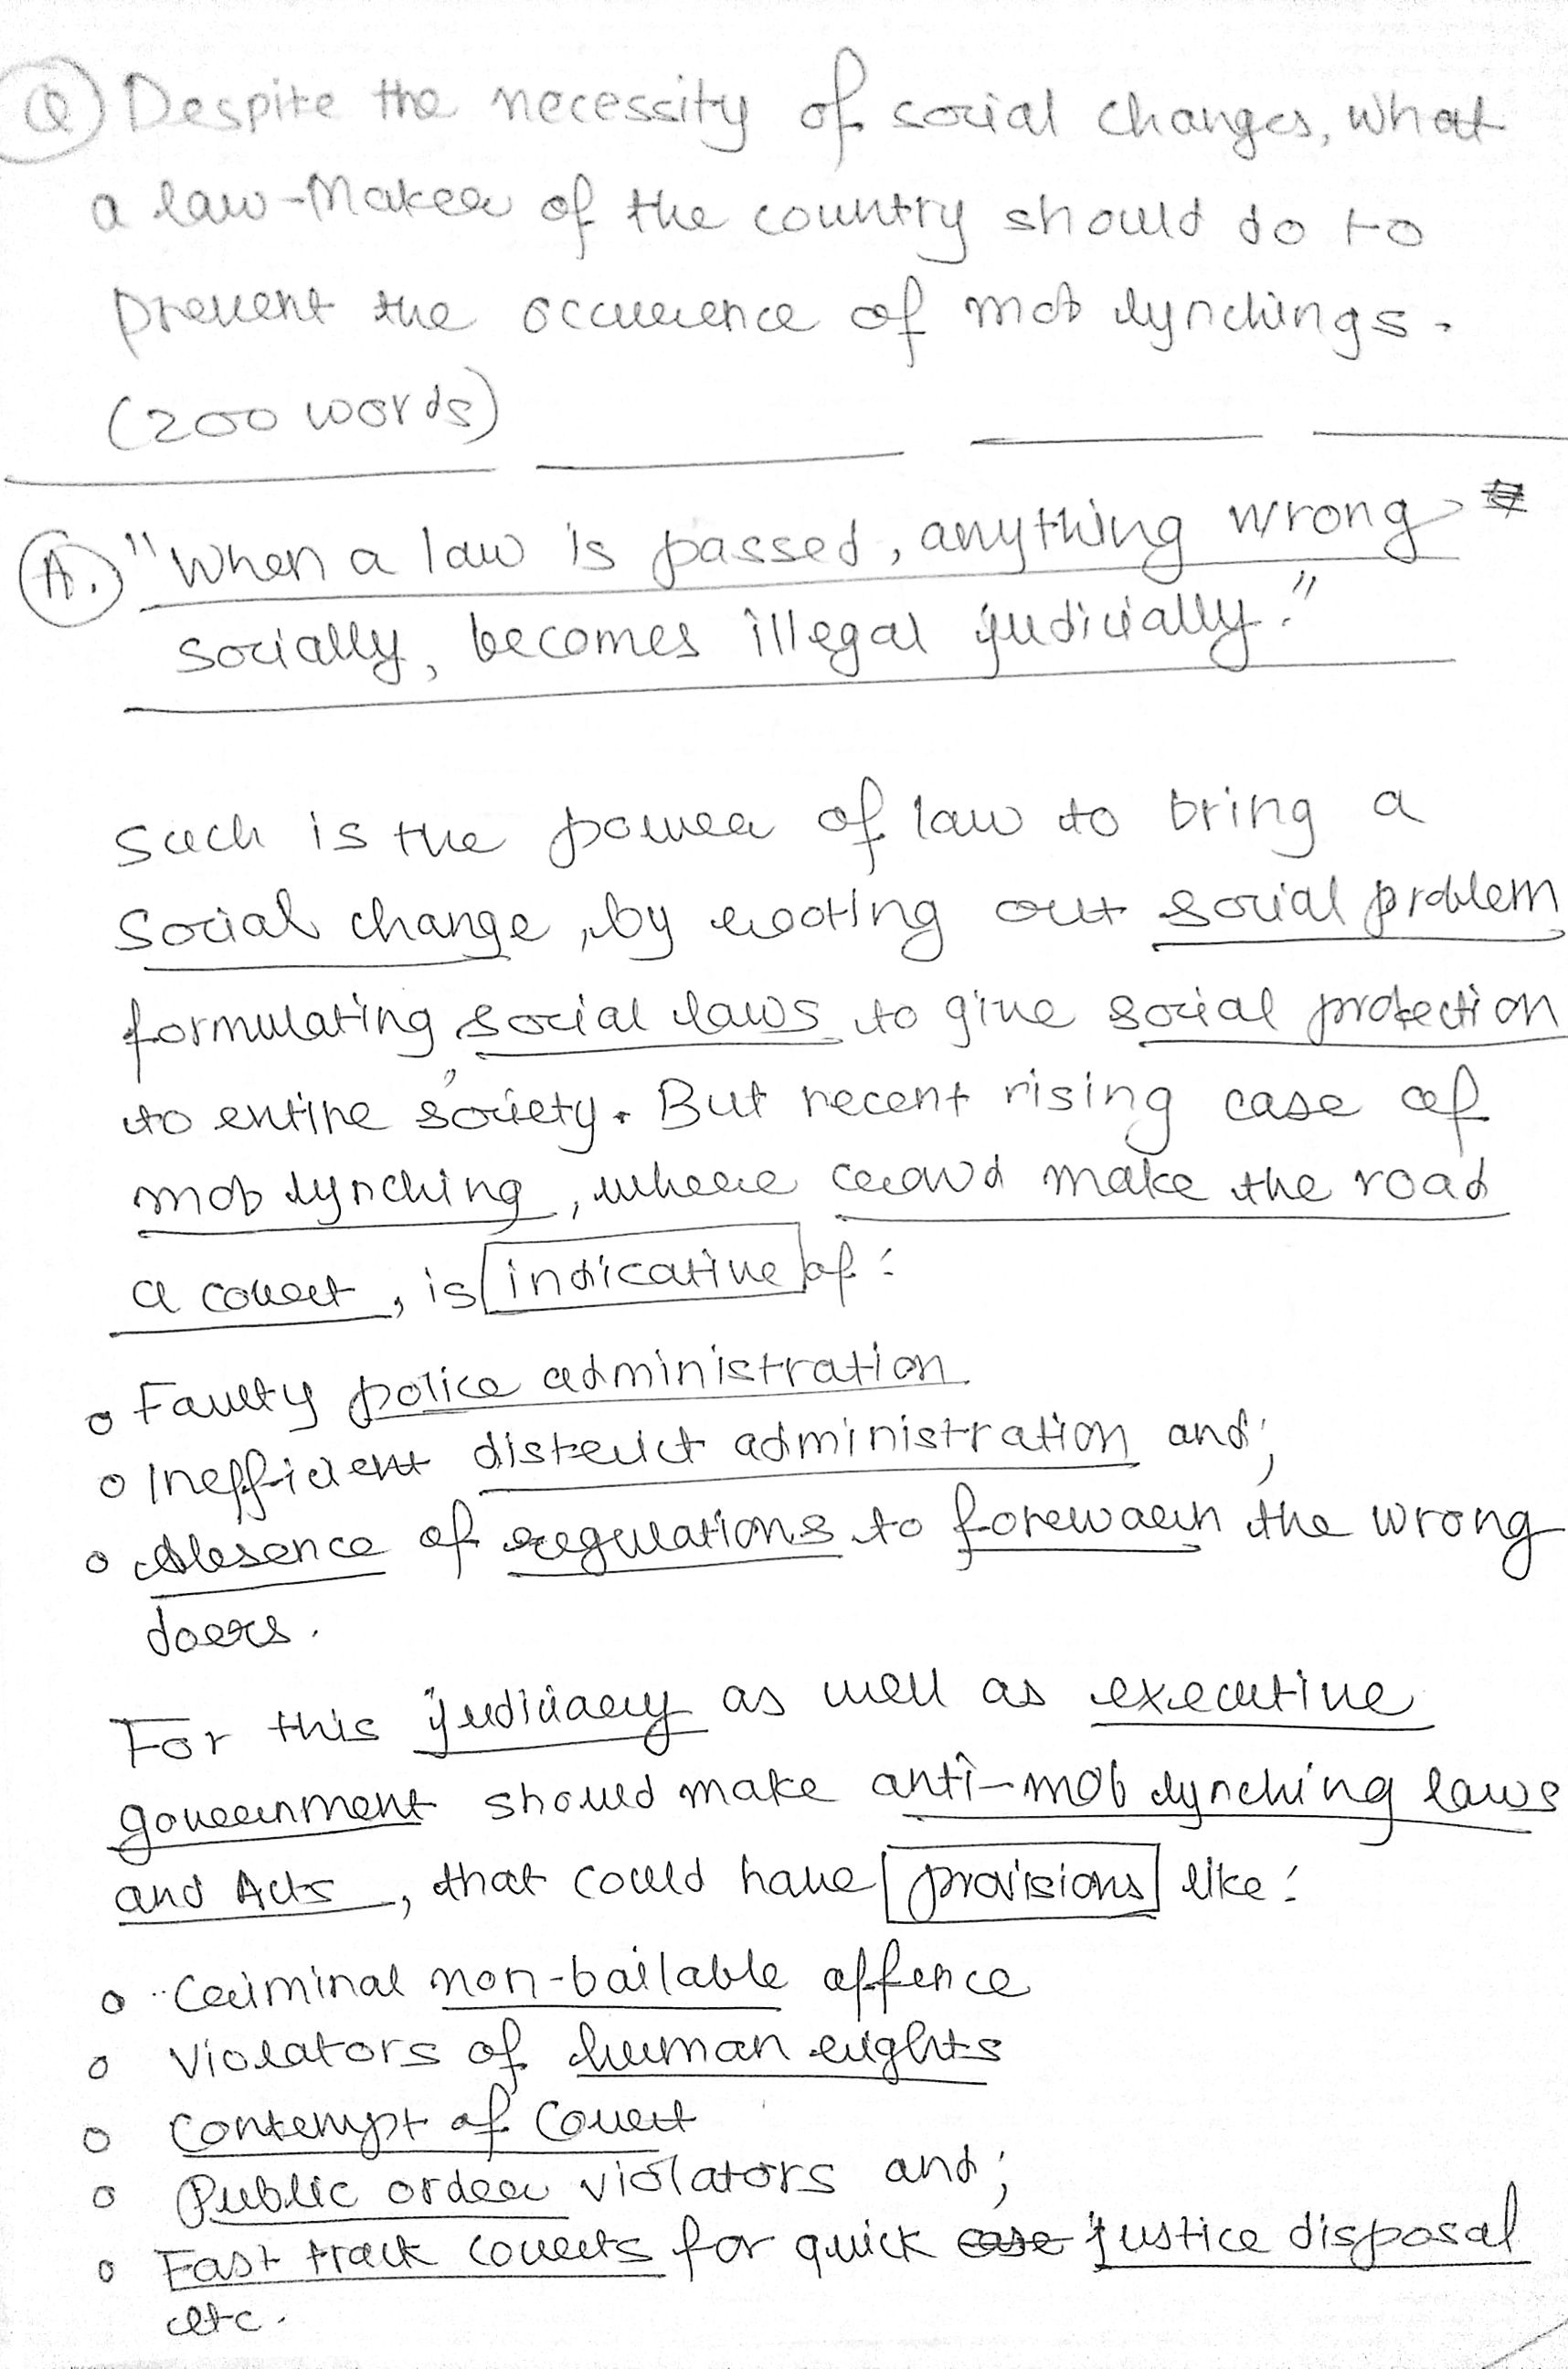 Q) Despite the necessity of social changes, what
a law-Maker of the country should do to
prevent the occurrence of mob lynchings.
(200 words)
A. "When a law is passed, anything wrong
socially, becomes illegal judicially."
Such is the power of law to bring a
social change, by rooting out social problem
formulating social laws to give social protection
to entire society. But recent rising case of
mob lynching, where crowd make the road
a court, is indicative of:
o Faulty police administration.
o Inefficient district administration and;
o Absence of regulations to forewarn the wrong
doers.
For this judiciary as well as executive
government should make anti-mob lynching laws
and Acts, that could have provisions like:
o Criminal non-bailable offence
o Violators of human rights
o Contempt of Court
o Public order violators and;
o Fast track courts for quick case justice disposal
etc.